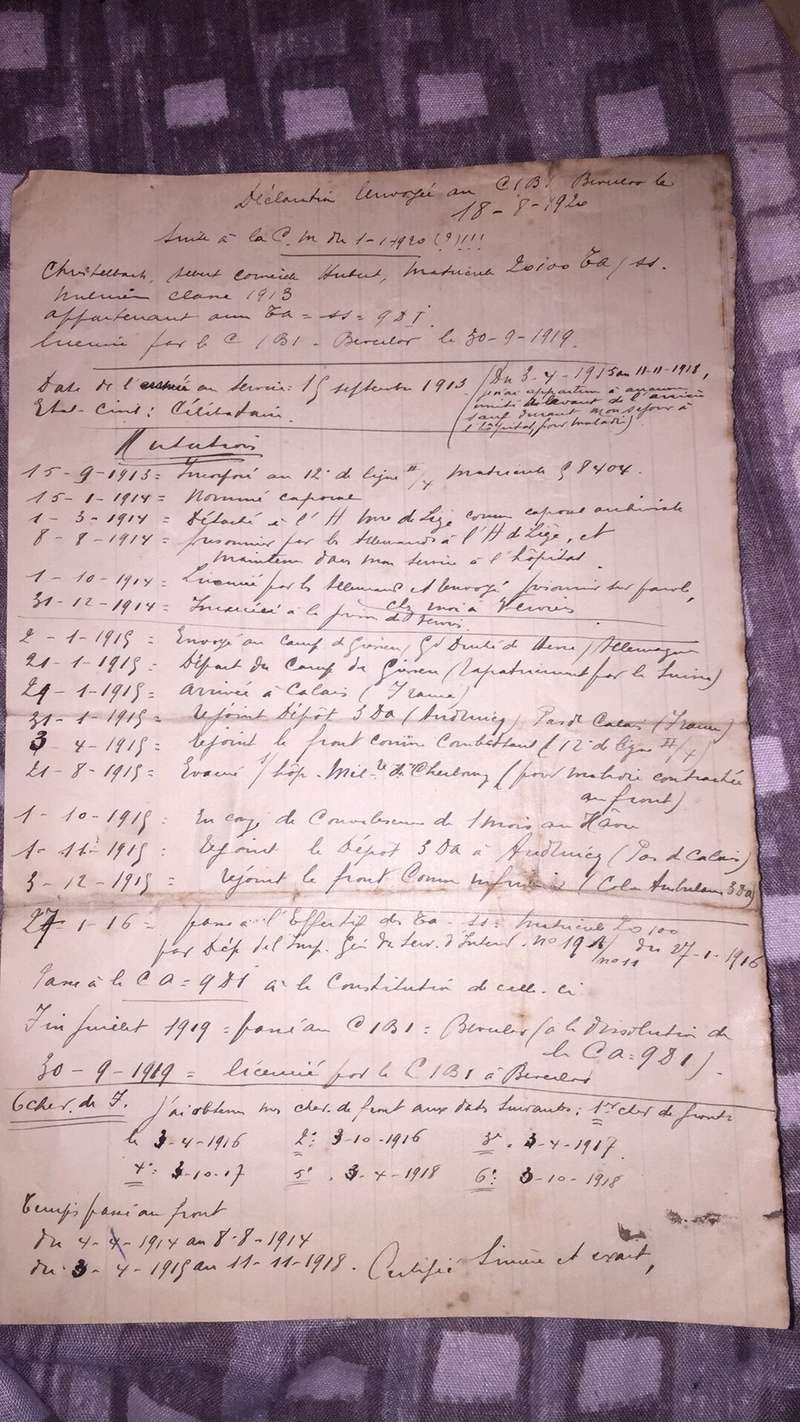 Déclaration envoyée au C I B I Beverloo le
18-8-1920
Suite à la C.M du 1-1-1920 (?)!!!
Hubert, Matricule 20100 TA/SS.
Milicien classe 1913
appartenant aux TA = SS = 9 D I.
licencié par le C I B I - Beverloo le 30-9-1919.
Date de l'entrée au service: 15 septembre 1913
(Du 3-4-1915 au 11-11-1918,
j'ai appartenu à aucune
unité relevant de l'arrière
sauf durant mon séjour à
l'hôpital, pour maladie)
Etat-Civil: Célibataire.
Mutations
15-9-1913 = Incorporé au 12e de ligne Matricule 58404.
15-1-1914 = Nommé caporal
1-3-1914 = Détaché à l'H Mre de Liège comme caporal
8-8-1914 = prisonnier par les Allemands à l'H de Liège, et
maintenu dans mon service à l'hôpital.
1-10-1914 = Licencié par les Allemands et renvoyé prisonnier sur parole,
chez moi à Verviers
31-12-1914 = Incarcéré à la prison de Verviers.
2-1-1915 = Envoyé au camp de Giessen, Gd Duché de Hesse, Allemagne
21-1-1915 = Départ du Camp de Giessen (rapatriement par la Suisse)
29-1-1915 = arrivée à Calais (France)
31-1-1915 = rejoint Dépôt 3 DA (Audruicq) Pas de Calais (France)
3-4-1915 = rejoint le front comme combattant (12e de ligne
21-8-1915 = Evacué s/ hôp. Milre de Cherbourg (pour maladie contractée
au front)
1-10-1915 = En congé de Convalescence de 1 mois au Hâvre
1-11-1915 = rejoint le Dépôt 3 DA à Audruicq (Pas de Calais)
3-12-1915 = rejoint le front Comme infirmier (Colne Ambulance 3 DA)
27-1-16 = passé à l'Effectif des TA - SS: Matricule 20100
par Dép. de l'Insp. Gén du Serv. d' no 19 du 27-1-1916
Passé à la CA = 9 D I à la Constitution de celle-ci
Fin Juillet 1919 = passé au C I B I = Beverloo (à la dissolution de
la CA = 9 D I).
30-9-1919 = licencié par le C I B I à Beverloo
6 chev. de F. J'ai obtenu mes chev. de front aux dates suivantes: 1er chev de front:
le 3-4-1916 2e: 3-10-1916 3e. 3-4-1917.
4e: 3-10-17 5e. 3-4-1918 6e: 3-10-1918
Temps passé au front
du 4-4-1914 au 8-8-1914
du 3-4-1915 au 11-11-1918. Certifié Sincère et exact,